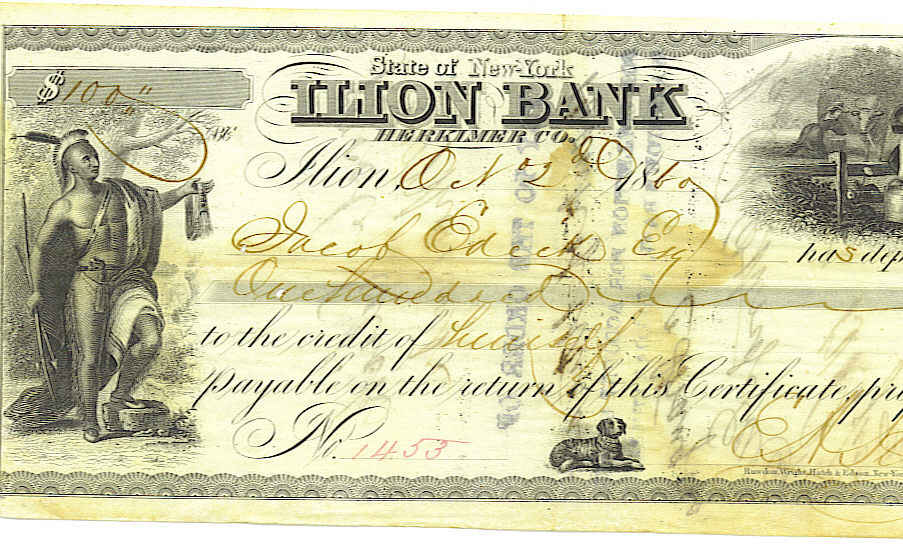 State of New-York
$100"
ILION BANK
HERKIMER CO.
Ilion, Nov 2d 1860
Jacob Edick Esq has dep
One hundred
to the credit of himself
payable on the return of this Certificate, pr
No. 1453
Rawdon, Wright, Hatch & Edson, New-Yor